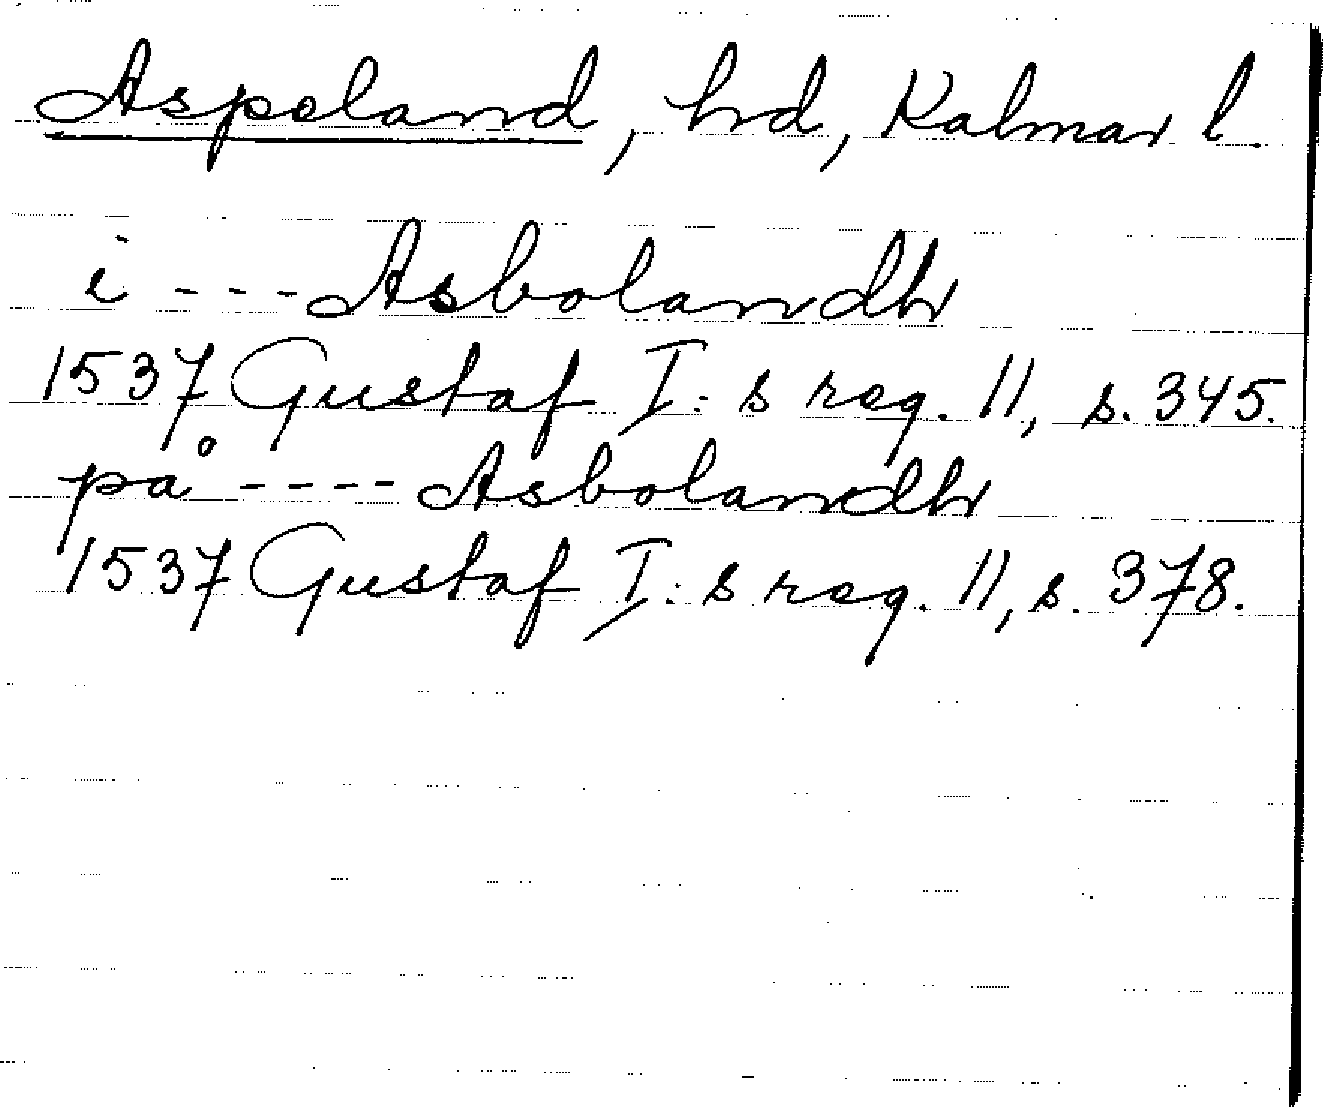 Aspeland, hd, Kalmar l.
i --- Asbolandh
1537 Gustaf I:s reg. 11, s. 345.
på ---- Asbolandh
1537 Gustaf I:s reg. 11, s. 378.